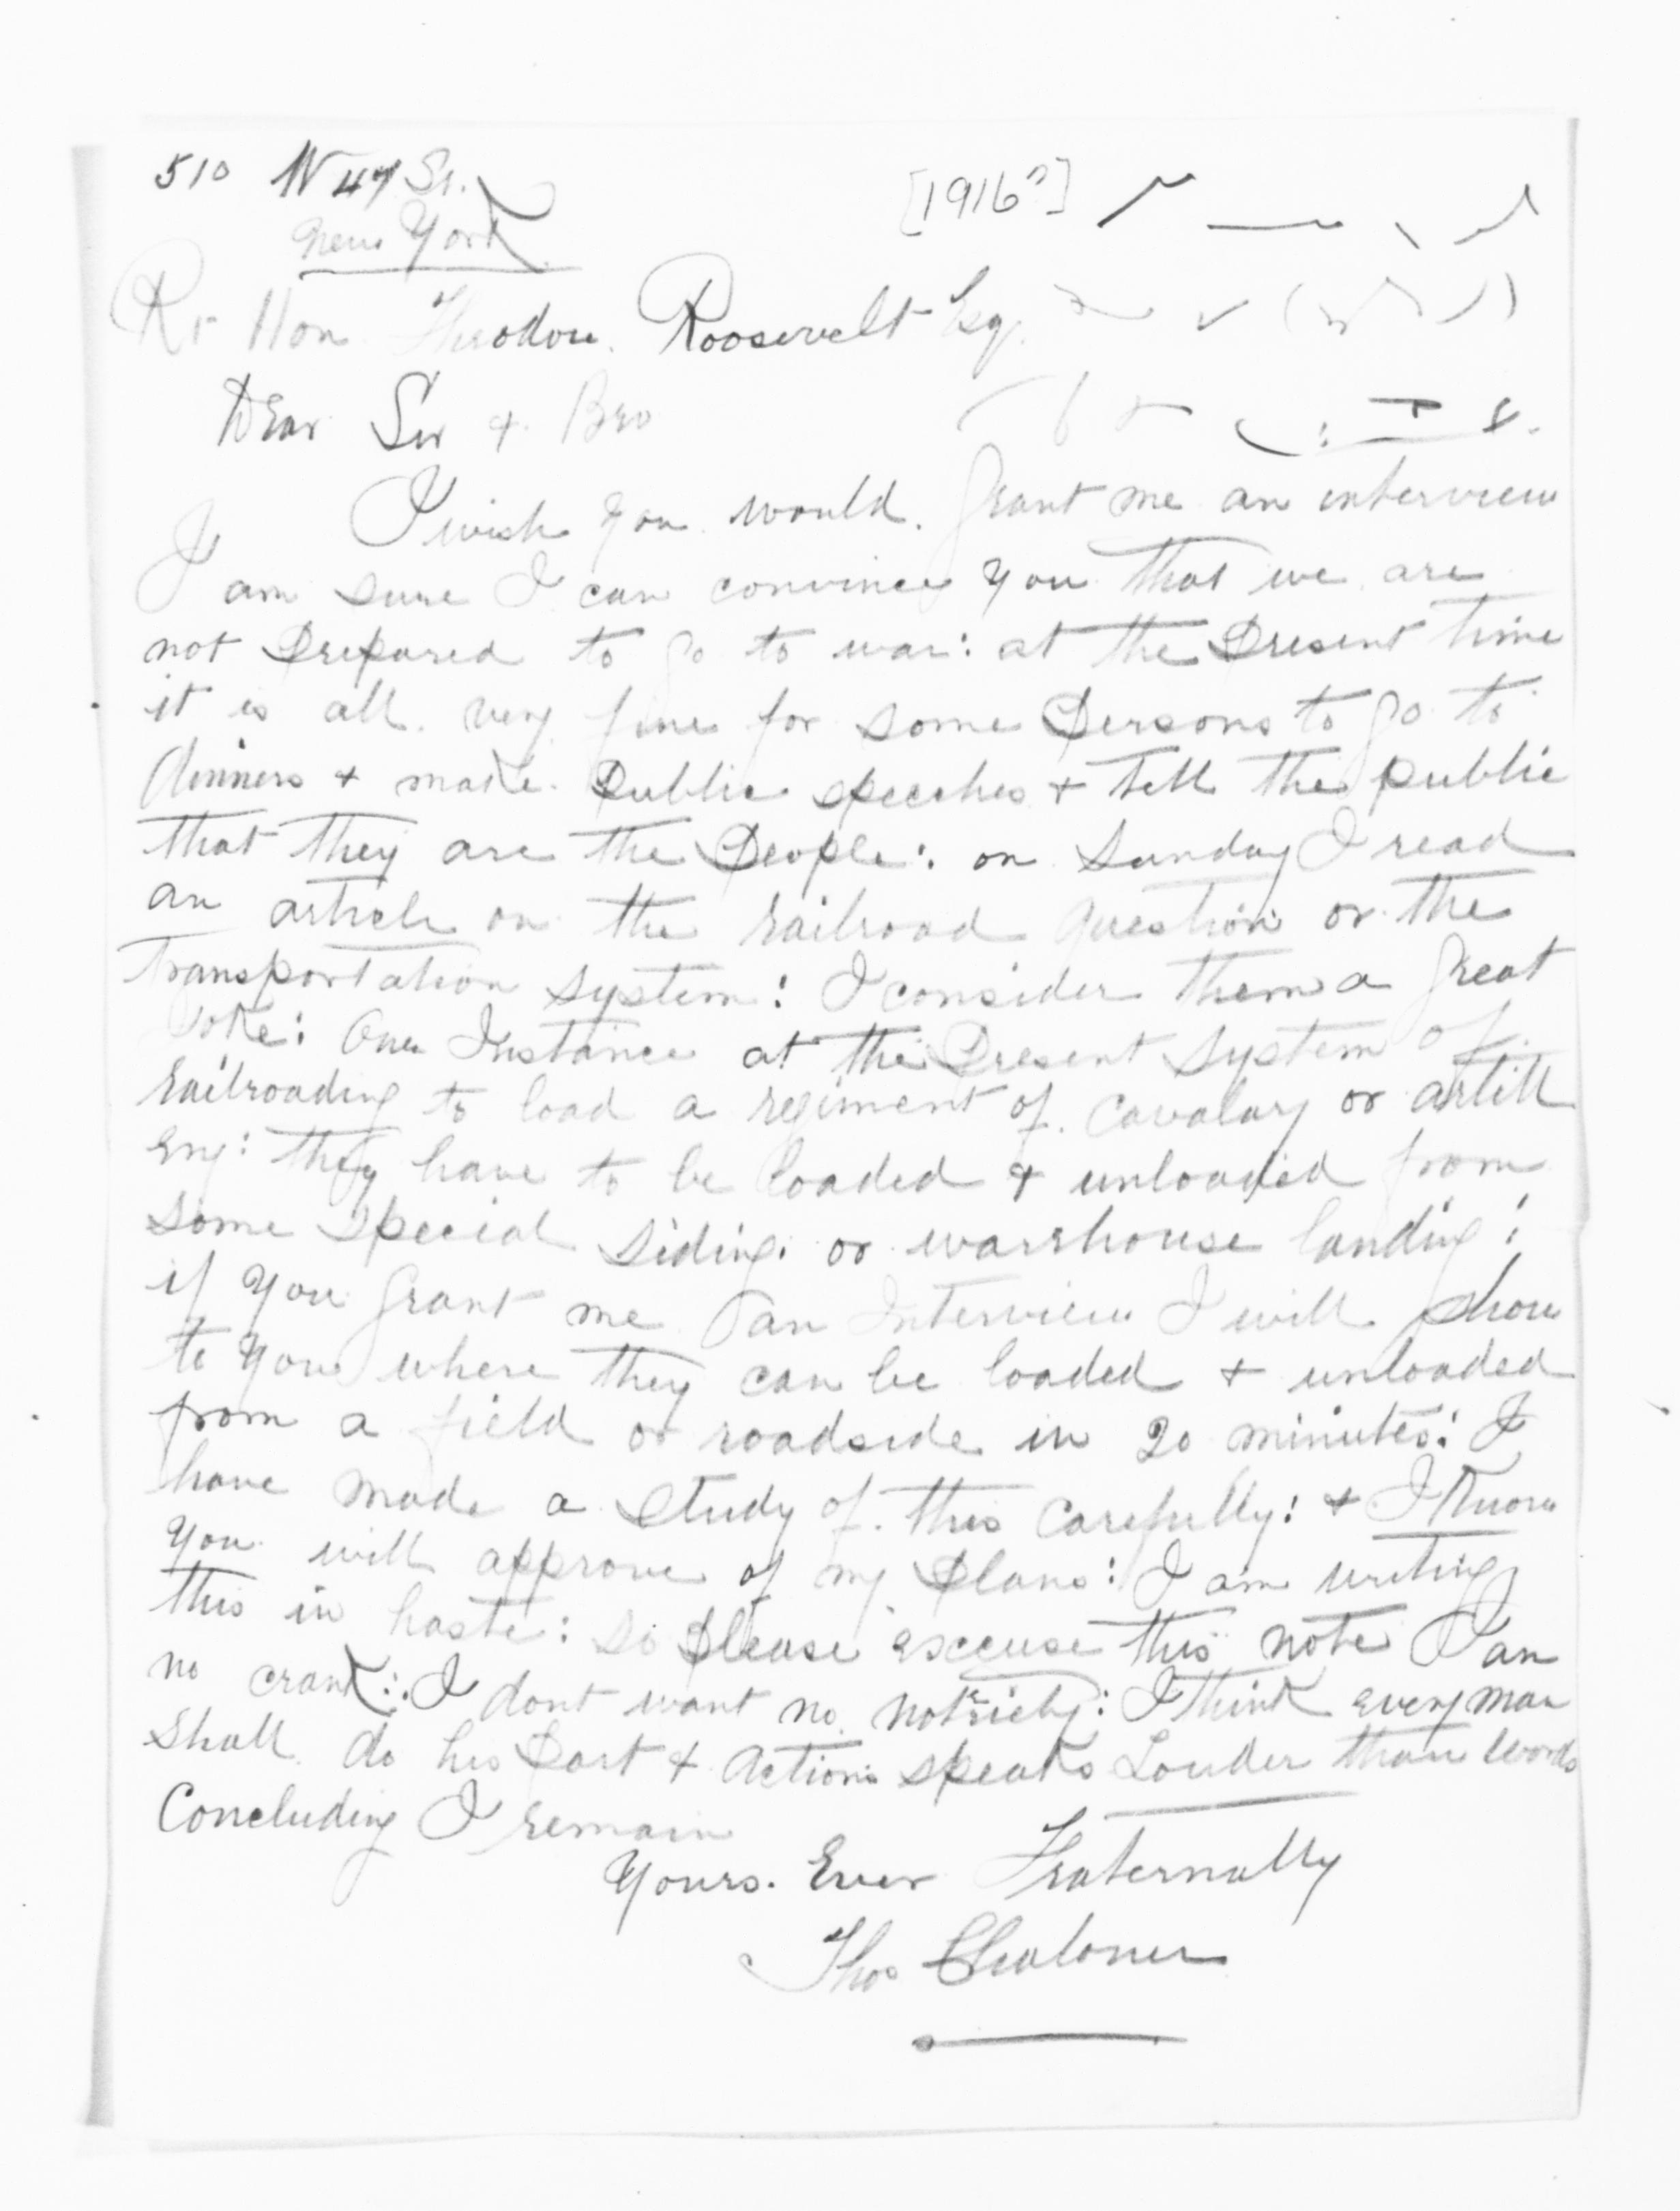 510 W 47 St.
New York
[1916?]
Rt Hon Theodore Roosevelt Esq.
Dear Sir & Bro
I wish you would grant me an interview
I am sure I can convince you that we are
not Prepared to go to war: at the Present time
it is all very fine for some Persons to go to
dinners & make Public speeches & tell the public
that they are the People: on Sunday I read
an article on the Railroad question or the
Transportation system: I consider them a great
Joke: One Instance at the Present system of
Railroading to load a regiment of Cavalary or artill
ery: they have to be loaded & unloaded from
some special siding or warehouse landing:
if you grant me an Interview I will show
to you where they can be loaded & unloaded
from a field or roadside in 20 minutes: I
have made a study of this carefully: & I Know
you will approve of my Plans: I am writing
this in haste: so please excuse this note I am
no crank: I dont want no notriety: I think every man
shall do his Part & Actions speaks Louder than words
Concluding I remain
Yours. Ever Fraternally
Thos Chaloner